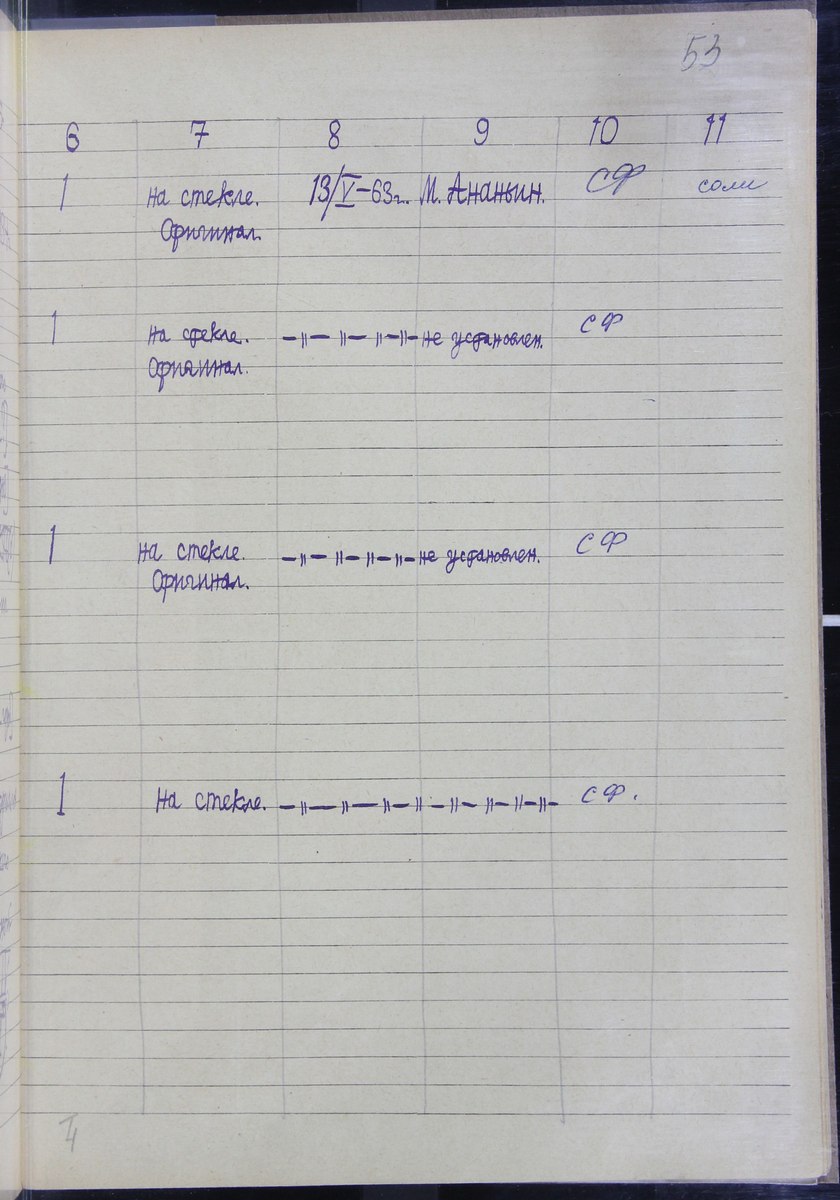 53
6 7 8 9 10 11
1 На стекле. 13/V-63г. М. Ананьин. СФ соли
Оригинал.
1 На стекле. -"- -"- -"- не установлен. СФ
Оригинал.
1 На стекле. -"- -"- -"- не установлен. СФ
Оригинал.
1 На стекле. -"- -"- -"- -"- -"- СФ.